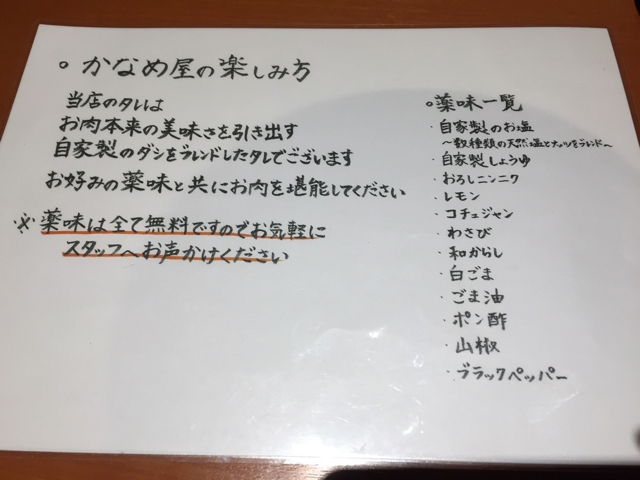 ○ かなめ屋の楽しみ方
当店のタレは
お肉本来の美味さを引き出す
自家製のダシをブレンドしたタレでございます
お好みの薬味と共にお肉を堪能してください
※ 薬味は全て無料ですのでお気軽に
スタッフへお声かけください
○薬味一覧
・自家製のお塩
〜数種類の天然塩とナッツをブレンド〜
・自家製しょうゆ
・おろしニンニク
・レモン
・コチュジャン
・わさび
・和からし
・白ごま
・ごま油
・ポン酢
・山椒
・ブラックペッパー